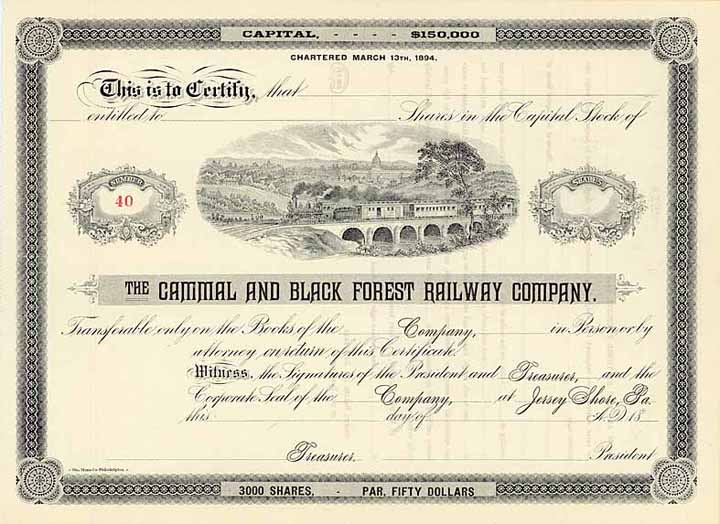 CAPITAL, - - - - $150,000
CHARTERED MARCH 13TH, 1894.
This is to Certify, that
entitled to Shares in the Capital Stock of
NUMBER SHARES
40
THE CAMMAL AND BLACK FOREST RAILWAY COMPANY.
Transferable only on the Books of the Company, in Person or by
attorney on return of this Certificate.
Witness, the Signatures of the President and Treasurer, and the
Corporate Seal of the Company, at Jersey Shore, Pa.
this day of A.D. 18
Treasurer. President
Philadelphia.
3000 SHARES, - PAR, FIFTY DOLLARS